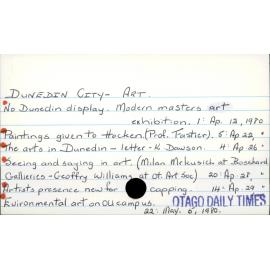 DUNEDIN CITY - ART.
No Dunedin display. Modern masters art
exhibition. 1: Ap. 12, 1980
Paintings given to Hocken. (Prof. Pastier). 5: Ap 22, "
The arts in Dunedin - letter - K Dawson. 4: Ap 26 "
Seeing and saying in art. (Milan Mrkusich at Bosshard
Galleries - Geoffry Williams at Ot. Art Soc) 20: Ap. 28, "
Artists presence new for capping. 14: Ap. 29 "
Environmental art on OU campus. OTAGO DAILY TIMES
22: May. 6, 1980.